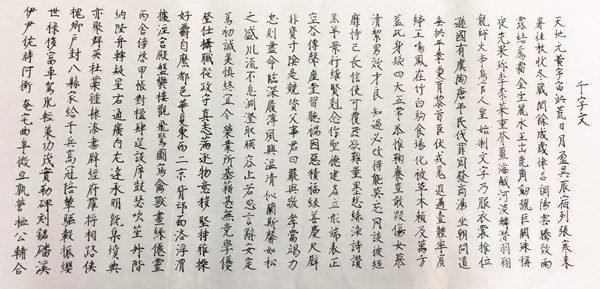 千字文
天地元黃宇宙洪荒日月盈昃辰宿列張寒来
暑往秋收冬藏閏餘成歲律吕調陽雲騰致雨
露結為霜金生麗水玉出崑岡劍號巨闕珠稱
夜光果珍李柰菜重芥薑海鹹河淡鱗潛羽翔
龍師火帝鳥官人皇始制文字乃服衣裳推位
遜國有虞陶唐弔民伐罪周發商湯坐朝問道
垂拱平章愛育黎首臣伏戎羌遐邇壹體率賓
歸王鳴鳳在竹白駒食場化被草木賴及萬方
蓋此身髮四大五常恭惟鞠養豈敢毀傷女慕
清絜男效才良知過必改得能莫忘罔談彼短
靡恃己長信使可覆器欲難量墨悲絲染詩讚
羔羊景行維賢剋念作聖德建名立形端表正
空谷傳聲虛堂習聽禍因惡積福緣善慶尺璧
非寶寸陰是競資父事君曰嚴與敬孝當竭力
忠則盡命臨深履薄夙興溫凊似蘭斯馨如松
之盛川流不息淵澄取映容止若思言辭安定
篤初誠美慎終宜令榮業所基籍甚無竟學優
登仕攝職從政守真志滿逐物意移堅持雅操
好爵自縻都邑華夏東西二京背邙面洛浮渭
據涇宮殿盤鬱樓觀飛驚圖寫禽獸畫綵僊靈
丙舍傍啟甲帳對楹肆筵設席鼓瑟吹笙升階
納陛弁轉疑星右通廣內左達承明既集墳典
亦聚群英杜稾鍾隸漆書壁經府羅將相路俠
槐卿戶封八縣家給千兵高冠陪輦驅轂振纓
世祿侈富車駕肥輕策功茂實勒碑刻銘磻溪
伊尹佐時阿衡奄宅曲阜微旦孰營桓公輔合